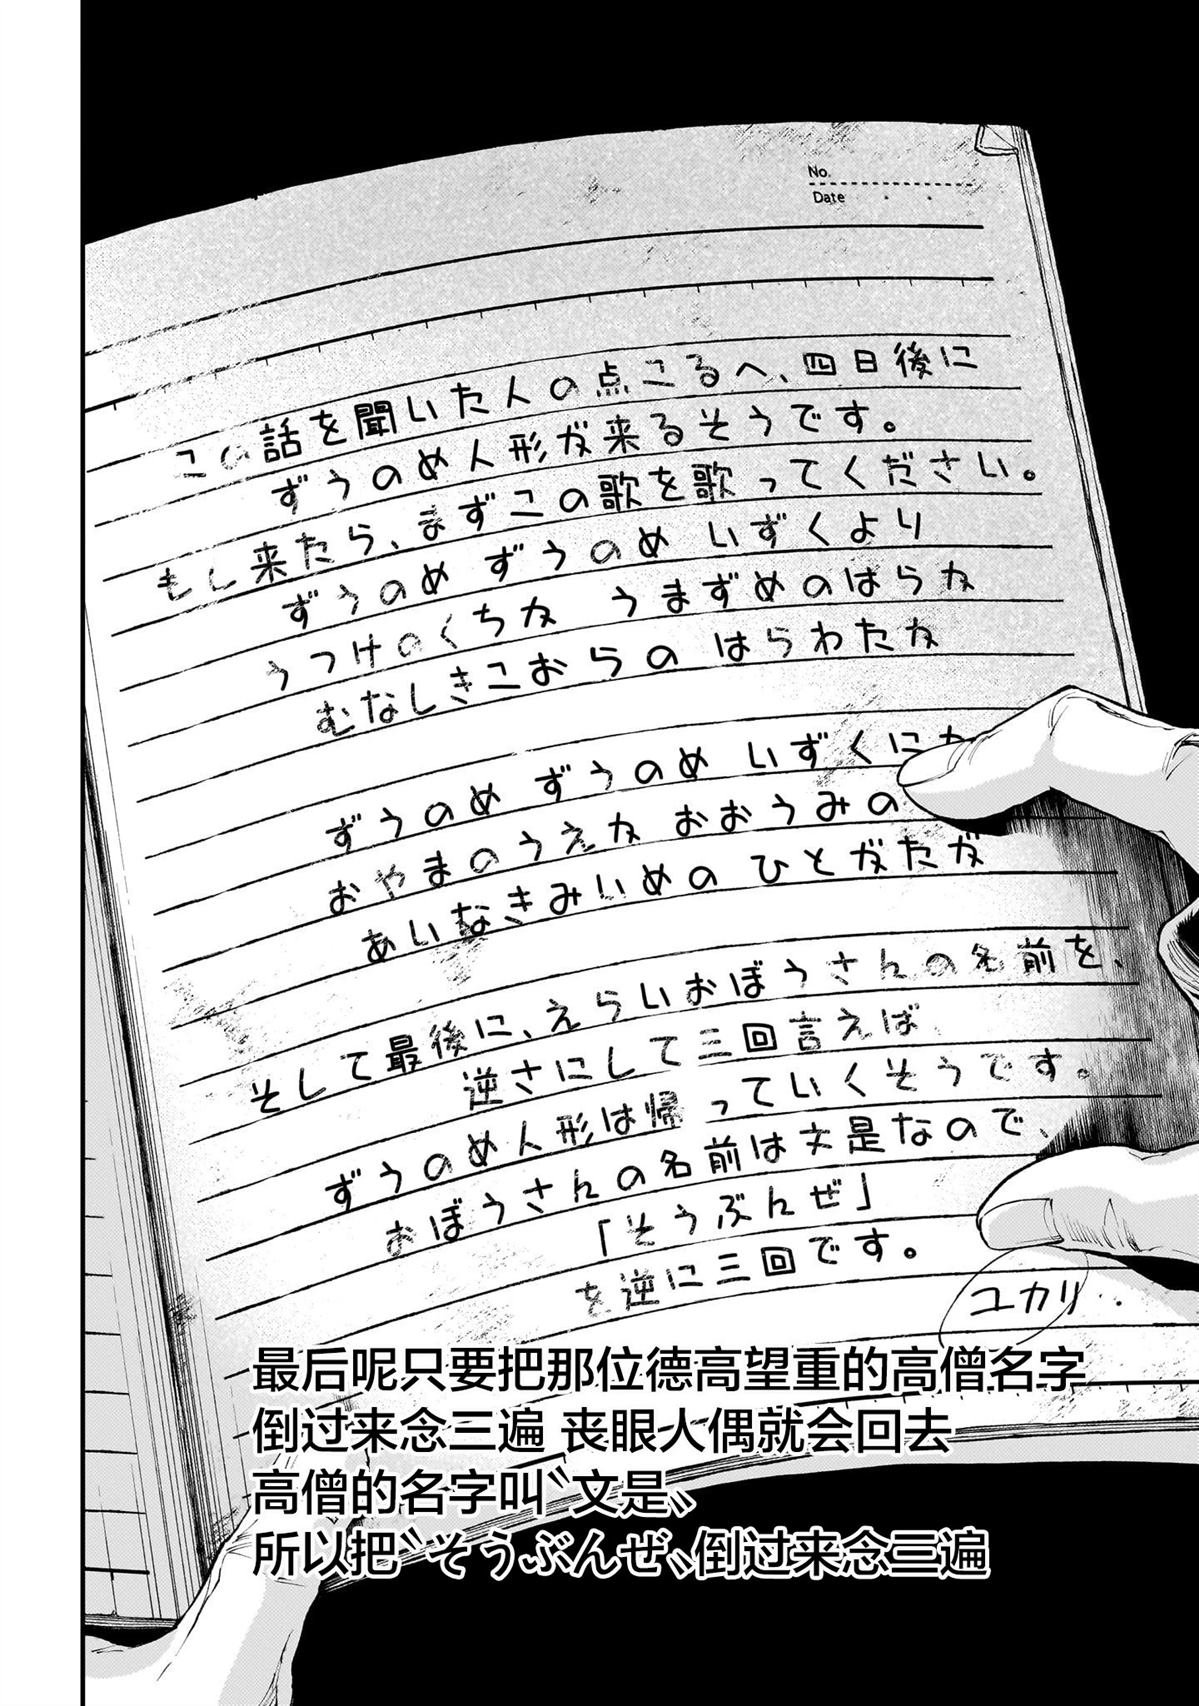 No.
Date
この話を聞いた人の点こるへ、四日後に
ずうのめ人形が来るそうです。
もし来たら、まずこの歌を歌ってください。
ずうのめ ずうのめ いずくより
うつけのくちか うまずめのはらか
むなしきこおらの はらわたか
ずうのめ ずうのめ いずくにか
おやまのうえか おおうみの
あいなきみいめの ひとがたが
そして最後に、えらいおぼうさんの名前を、
逆さにして三回言えば、
ずうのめ人形は帰っていくそうです。
おぼうさんの名前は文是なので、
「そうぶんぜ」
を逆に三回です。
ユカリ
最后呢只要把那位德高望重的高僧名字
倒过来念三遍 丧眼人偶就会回去
高僧的名字叫〝文是〟
所以把〝そうぶんぜ〟倒过来念三遍